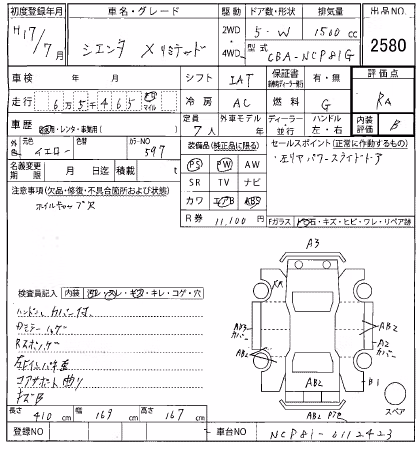 初度登録年月 車名・グレード 駆動 ドア数・形状 排気量 出品NO
H17/7月 シエンタ X リミテッド 2WD・4WD 5・W 1500cc 2580
型式 CBA-NCP81G
車検 年 月 シフト IAT 保証書 有・無 評価点
走行 6万5千465 km マイル 冷房 AC 燃料 G RA
車歴 自家用・レンタ・事業用( ) 定員 7人 外車モデル 年 ディーラー・並行 ハンドル 左・右 内装評価 B
外色 元色 イエロー 色替 カラーNO 597 装備品(純正品に限る) セールスポイント(正常に作動するもの)
名義変更期限 月 日迄 積載 t PS PW AW ・左リヤパワースライドドア
注意事項(欠品・修復・不具合箇所および状態) SR TV ナビ
ホイルキャップ欠 カワ エアB ABS
R券 11,100円 Fガラス 飛石・キズ・ヒビ・ワレ・リペア跡
A3
検査員記入 内装 汚レ・スレ・キズ・キレ・コゲ・穴
ハンドル、カバー付
AB2
A2
カバー
AB2
コアサポート曲り
キズB
B1
AB2
スペア
長さ 410cm 幅 169cm 高さ 167cm
登録NO 車台NO NCP81-0112423